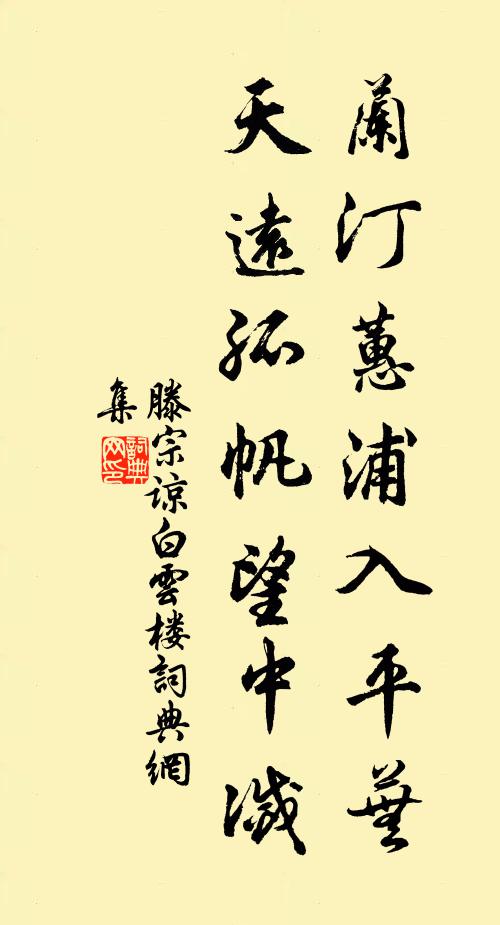 蘭汀蕙浦入平蕪
天遠孤帆望中滅
滕宗諒白雲楼詞典網
集
詞典网印